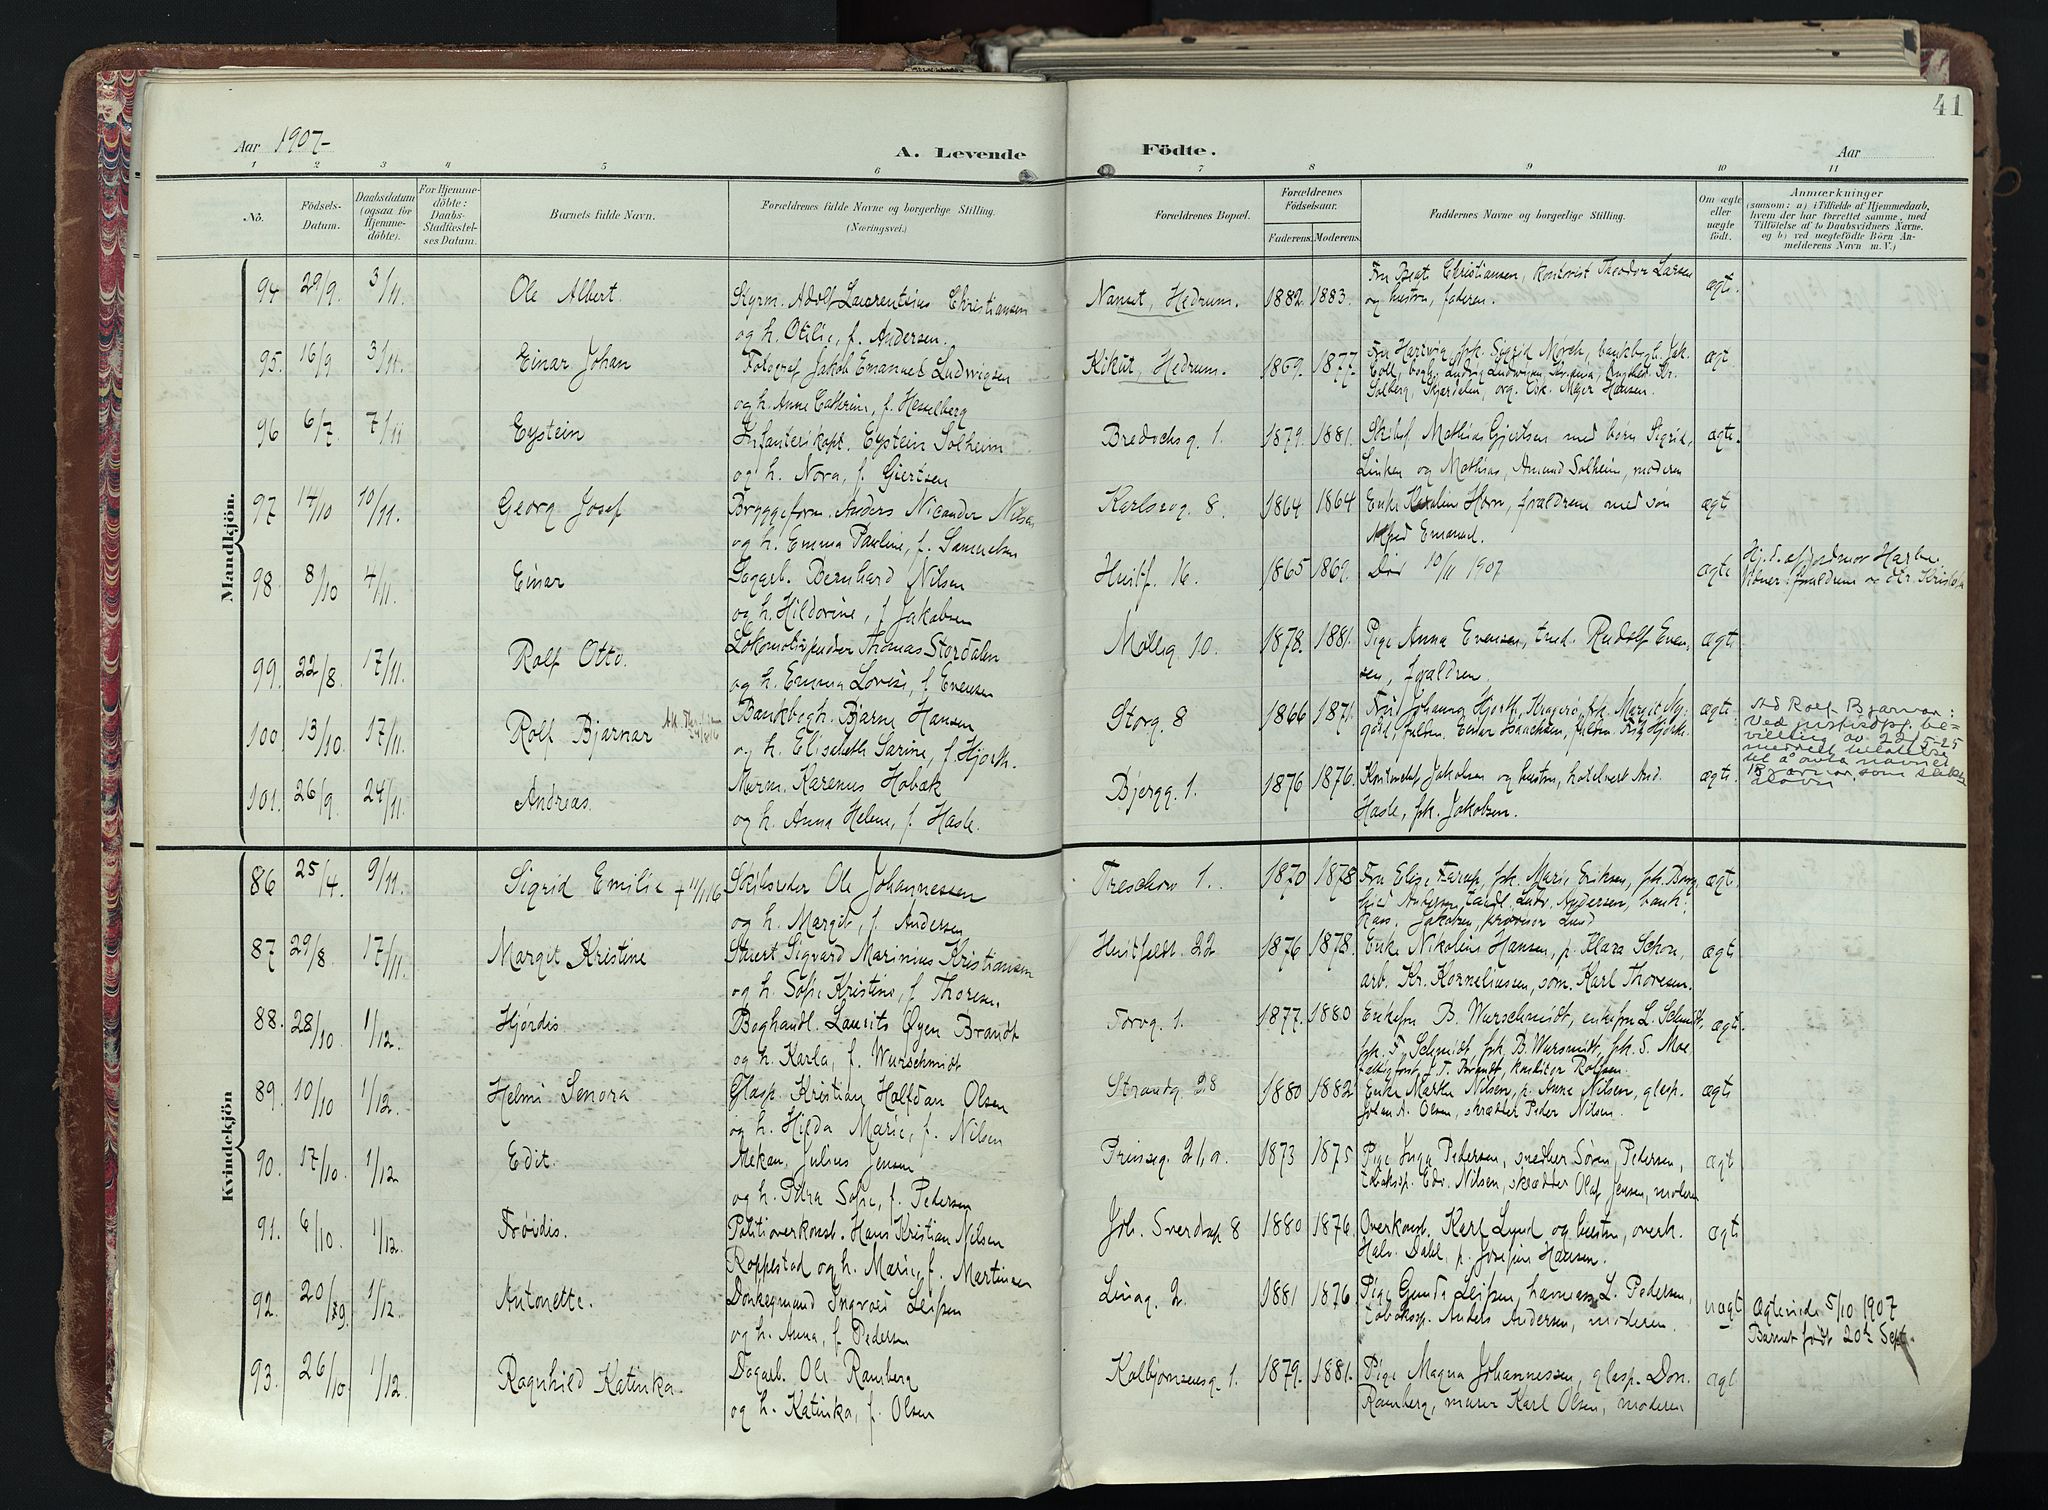 41
Aar 1907-
A. Levende Födte.
Aar
1 2 3 4 5 6 7 8 9 10 11
No.
Födsels-Datum.
Daabsdatum (ogsaa for Hjemmedöbte).
For Hjemmedöbte: Daabs-Stadfæstelses Datum.
Barnets fulde Navn.
Forældrenes fulde Navne og borgerlige Stilling. (Næringsvei.)
Forældrenes Bopæl.
Forældrenes Födselsaar.
Faderens. Moderens.
Faddernes Navne og borgerlige Stilling.
Om ægte eller uægte födt.
Anmærkninger
(saasom: a) i Tilfælde af Hjemmedaab, hvem der har forrettet samme, med Tilföielse af to Daabsvidners Navne. og b) ved uægtefödte Börn Anmelderens Navn m. V.)
Mandkjön.
94 29/9. 3/11. Ole Albert. Styrm. Adolf Laurentsius Christiansen Nanset, Hedrum. 1882. 1883. Fru Beat. Christiansen, kontorist Theodor Larsen ægt.
og h. Otilie, f. Andersen. og hustru, faderen.
95. 16/9 3/11. Einar Johan Fotograf Jakob Emanuel Ludwigsen Kikut, Hedrum. 1869. 1877. Fru Hartvig, frk. Sigrid Morch, bankbogh. Jak. ægt
og h. Anne Cathrine, f. Hesselberg
96 6/7. 7/11 Eystein Infanterikapt. Eystein Solheim Bredochsg. 1. 1879. 1881. Skibsf. Mathias Gjertsen med børn Sigrid, ægte.
og h. Nora, f. Giertsen og Mathias, Amund Solheim, moderen
97 14/10 10/11. Georg Josef Bryggeform. Anders Nicander Nilsen Karlsrog. 8. 1864 1864 Enke Karolin Horn, forældrene med søn ægt
og h. Emma Pauline, f. Samuelsen Alfred Emanuel.
98. 8/10 4/11. Einar Dagarb. Bernhard Nilsen Huitf. 16. 1865 1869. Død 10/11 1907 ægte Hj.d. af jordmor
og h. Hildorine, f. Jakobsen
99. 22/8. 17/11. Rolf Otto. Lokomotivpudser Thomas Stordalen Mølleg. 10. 1878. 1881. Pige Anna Evensen, tømd. Rudolf Evensen, forældren. ægt.
og h. Emma Lovise, f. Evensen
100. 13/10. 17/11. Rolf Bjarnar Bankbogh. Bjarne Hansen Storg. 8 1866 1871. Fru Johanna Hjorth, Kragerø, frk. Margit ægt.
og h. Elisabeth Sarine, f. Hjorth.
Ad Rolf Bjarnar:
Ved justisdp. bevilling av 22/5-25
meddelt tilladelse
til å anta navnet
Bjarnar som slektsnavn
101. 26/9. 24/11. Andreas. Murm. Karenus Hobæk Bjergg. 1. 1876 1876. Jakobsen og hustru, hotelvært And. ægt.
og h. Anna Helene, f. Hasle. Hasle, frk. Jakobsen.
Kvindekjön
86 25/4. 9/11. Sigrid Emilie † 11/1 16 Skibsreder Ole Johannessen Treschow 1. 1870 1878 Fru Elise Farup, frk. Marie Eriksen, frk. ægt.
og h. Margit, f. Andersen Andersen, tandl. Ludv. Andersen, bank. Jakobsen, provisor Lund
87 29/8 17/11. Margit Kristine Stuert Sigvard Marinius Kristiansen Huitfeldt. 22 1876 1878. Enke Nikoline Hansen, p. Klara Schou, ægt
og h. Sofie Kristine, f. Thoresen. arb. Kr. Korneliussen, søm. Karl Thoresen.
88. 28/10 1/12. Hjørdis Boghandl. Laurits Øyen Brandt Torvg. 1. 1877. 1880 Enkefru B. Wurschmidt, enkefru L. Schmidt, ægt.
og h. Karla, f. Wurschmidt frk. F. Schmidt, frk. B. Wursmidt, frk. S. Moe
89. 10/10 1/12. Helmi Senora Glasp. Kristian Halfdan Olsen Strandg. 28 1880 1882 Enke Marthe Nilsen, p. Anne Nilsen, glasp. ægt
og h. Hilda Marie, f. Nilsen Johan A. Olsen, skrædder Peder Nilsen.
90. 17/10. 1/12 Edit. Mekan. Julius Jensen Prinseg. 21, a. 1873 1875 Pige Inga Pedersen, snedker Søren Pedersen, ægt
og h. Petra Sofie, f. Pedersen tobakssp. Edv. Nilsen, skrædder Olaf Jensen, moderen
91. 6/10. 1/12 Frøidis. Politioverkonst. Hans Kristian Nilsen Joh. Sverdrup 8 1880 1876. Overkonst. Karl Lund og hustru, overk. ægt
Roppestad og h. Marie, f. Martinsen Halv. Dahl, p. Josefine Hansen.
92. 20/9. 1/12 Antonette. Donkeymand Ingvald Leifsen Linag. 2. 1881 1876. Pige Gunda Leifsen, L. Pedersen, uægt Ægtevide 5/10 1907
og h. Anna, f. Pedersen tobakssp. Anders Andersen, moderen. Barnet født 20de Sept.
93. 26/10. 1/12 Ragnhild Katinka. Dagarb. Ole Ramberg Kolbjørnsensg. 1. 1879. 1881. Pige Magna Johannessen, glasp. Don. ægt
og h. Katinka, f. Olsen Ramberg, murer Karl Olsen, moderen